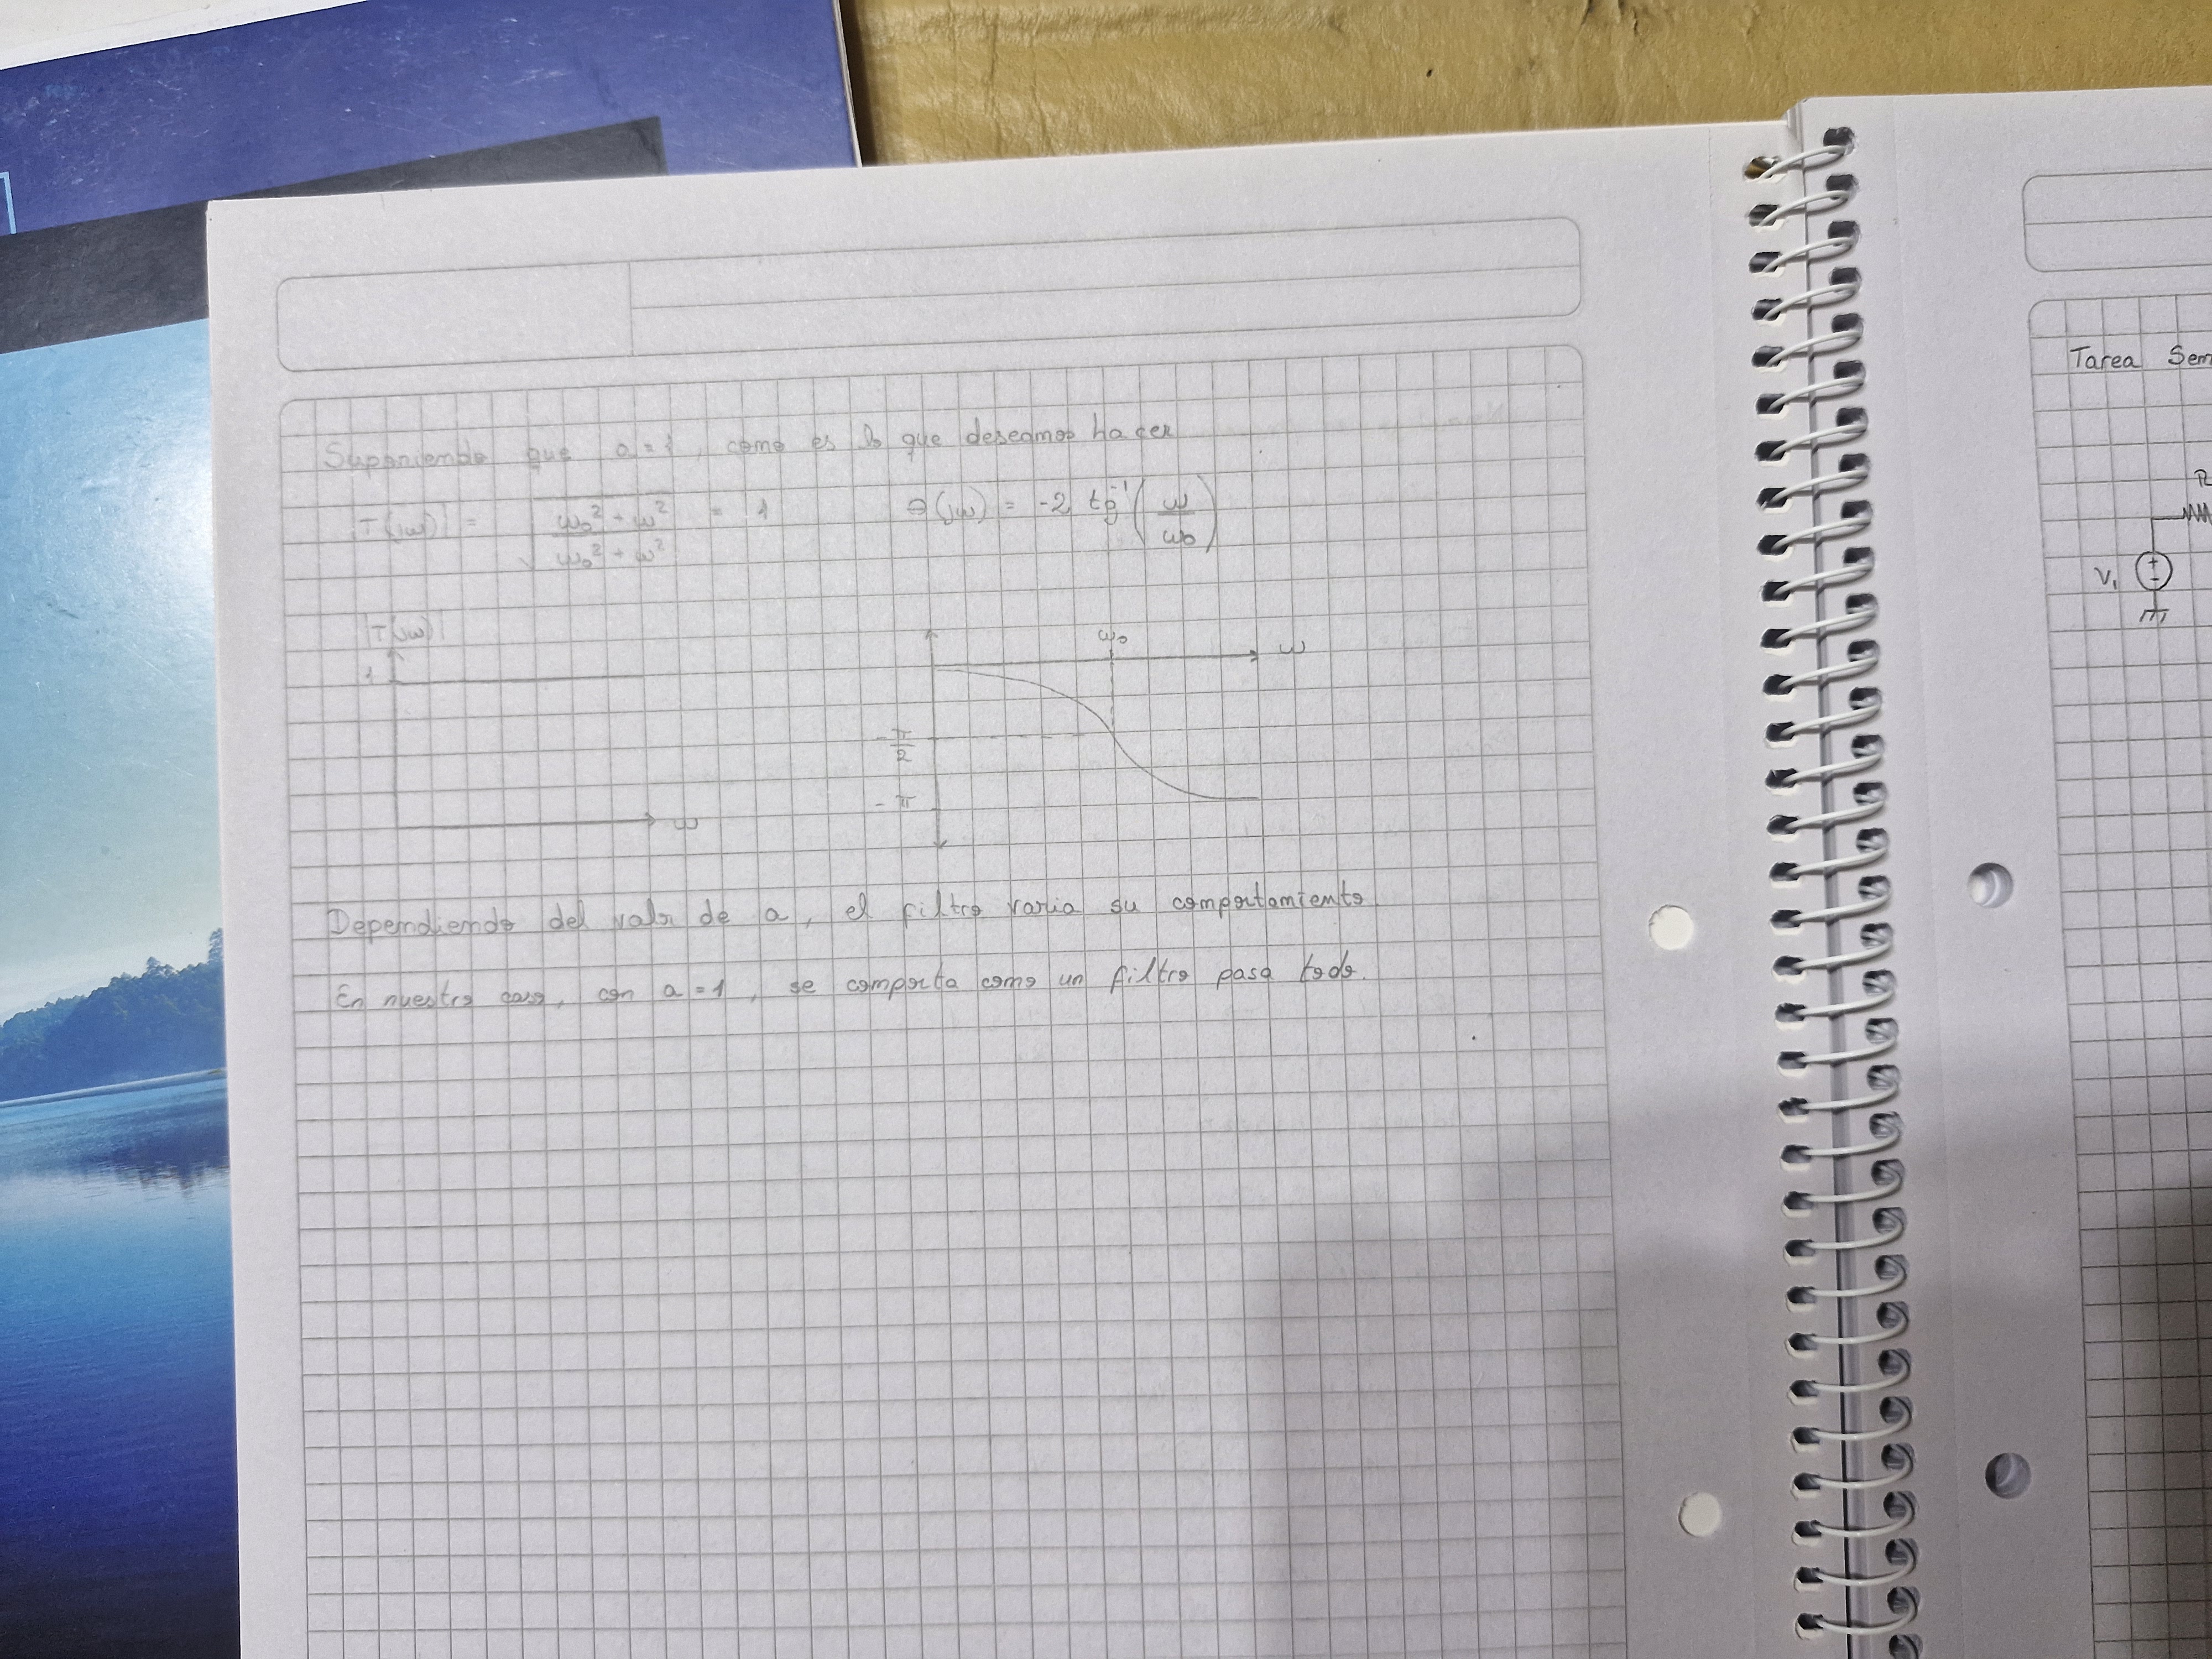 Suponiendo que a=1, como es lo que deseamos hacer
|T(jω)| = √((ω₀² + ω²)/(ω₀² + ω²)) = 1    Θ(jω) = -2 tg⁻¹(ω/ω₀)
|T(jω)|
1
ω
ω₀
ω
-π/2
-π
Dependiendo del valor de a, el filtro varia su comportamiento
En nuestro caso, con a=1, se comporta como un filtro pasa todo.
Tarea Sem
R
V₁